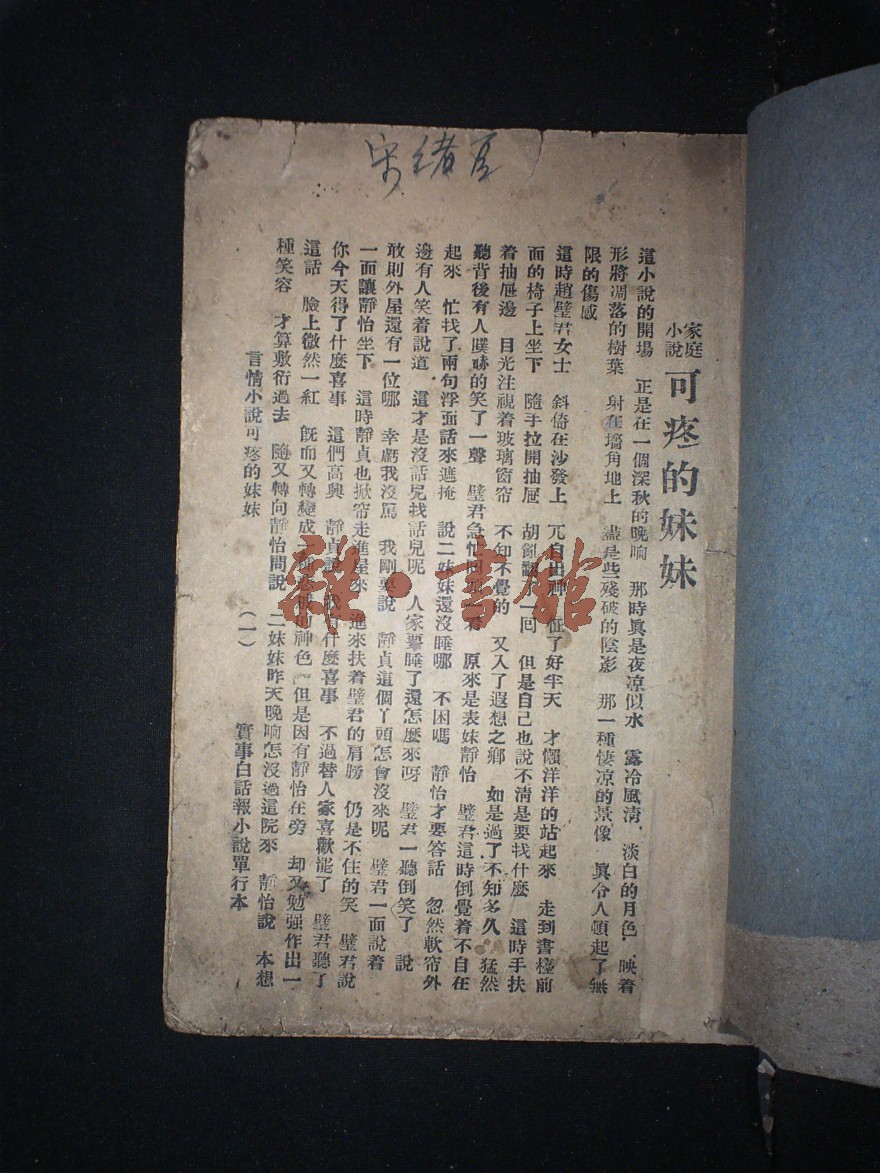 宋緒
家庭小說 可疼的妹妹
這小說的開場 正是在一個深秋的晚晌 那時眞是夜凉似水 露冷風淸 淡白的月色 映着
形將凋落的樹葉 射在墻角地上 盡是些殘破的陰影 那一種悽凉的景像 眞令人頓起了無
限的傷感
這時趙璧君女士 斜倚在沙發上 兀自出神 怔了好半天 才懶洋洋的站起來 走到書檯前
面的椅子上坐下 隨手拉開抽屜 胡翻了一回 但是自己也說不淸是要找什麼 這時手扶
着抽屜邊 目光注視着玻璃窗帘 不知不覺的 又入了遐想之鄉 如是過了不知多久 猛然
聽背後有人噗哧的笑了一聲 璧君急忙回頭一看 原來是表妹靜怡 璧君這時倒覺着不自在
起來 忙找了兩句浮面話來遮掩 說二妹妹還沒睡哪 不困嗎 靜怡才要答話 忽然軟帘外
邊有人笑着說道 這才是沒話兒找話兒呢 人家要睡了還怎麼來呀 璧君一聽倒笑了 說
敢則外屋還有一位哪 幸虧我沒罵 我剛要說 靜貞這個丫頭怎會沒來呢 璧君一面說着
一面讓靜怡坐下 這時靜貞也掀帘走進屋來 進來扶着璧君的肩膀 仍是不住的笑 璧君說
你今天得了什麼喜事 這們高興 靜貞說 我有什麼喜事 不過替人家喜歡能了 璧君聽了
這話 臉上微然一紅 旣而又轉變成一種的神色 但是因有靜怡在旁 却又勉强作出一
種笑容 才算敷衍過去 隨又轉向靜怡問說 二妹妹昨天晚晌怎沒過這院來 靜怡說 本想
言情小說可疼的妹妹 (一) 實事白話報小說單行本
雜·書館